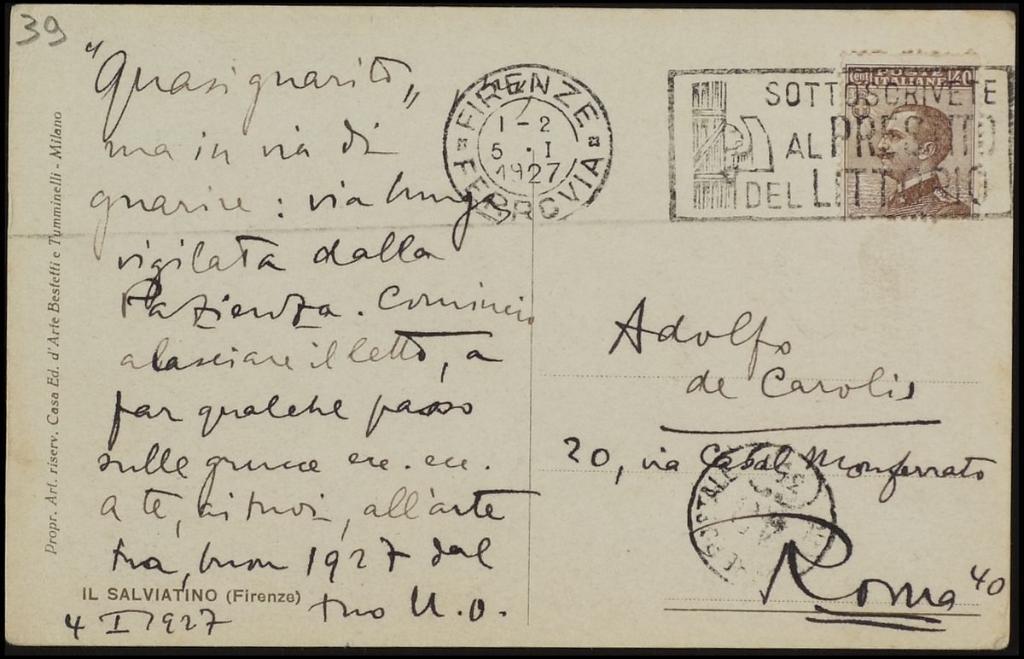 39
"Quasi guarito„
ma in via di
guarire: via lunga
vigilata dalla
Pazienza. Comincio
a lasciare il letto, a
far qualche passo
sulle grucce ecc. ecc.
A te, ai tuoi, all'arte
tua, buon 1927 dal
tuo U. O.
4 I 1927
IL SALVIATINO (Firenze)
Propr. Art. riserv. Casa Ed. d'Arte Bestetti e Tumminelli - Milano
FIRENZE
FERROVIA
1-2
5 · I
1927
SOTTOSCRIVETE
AL PRESTITO
DEL LITTORIO
POSTE
ITALIANE
40
Adolfo
de Carolis
20, via Casal Monferrato
Roma 40